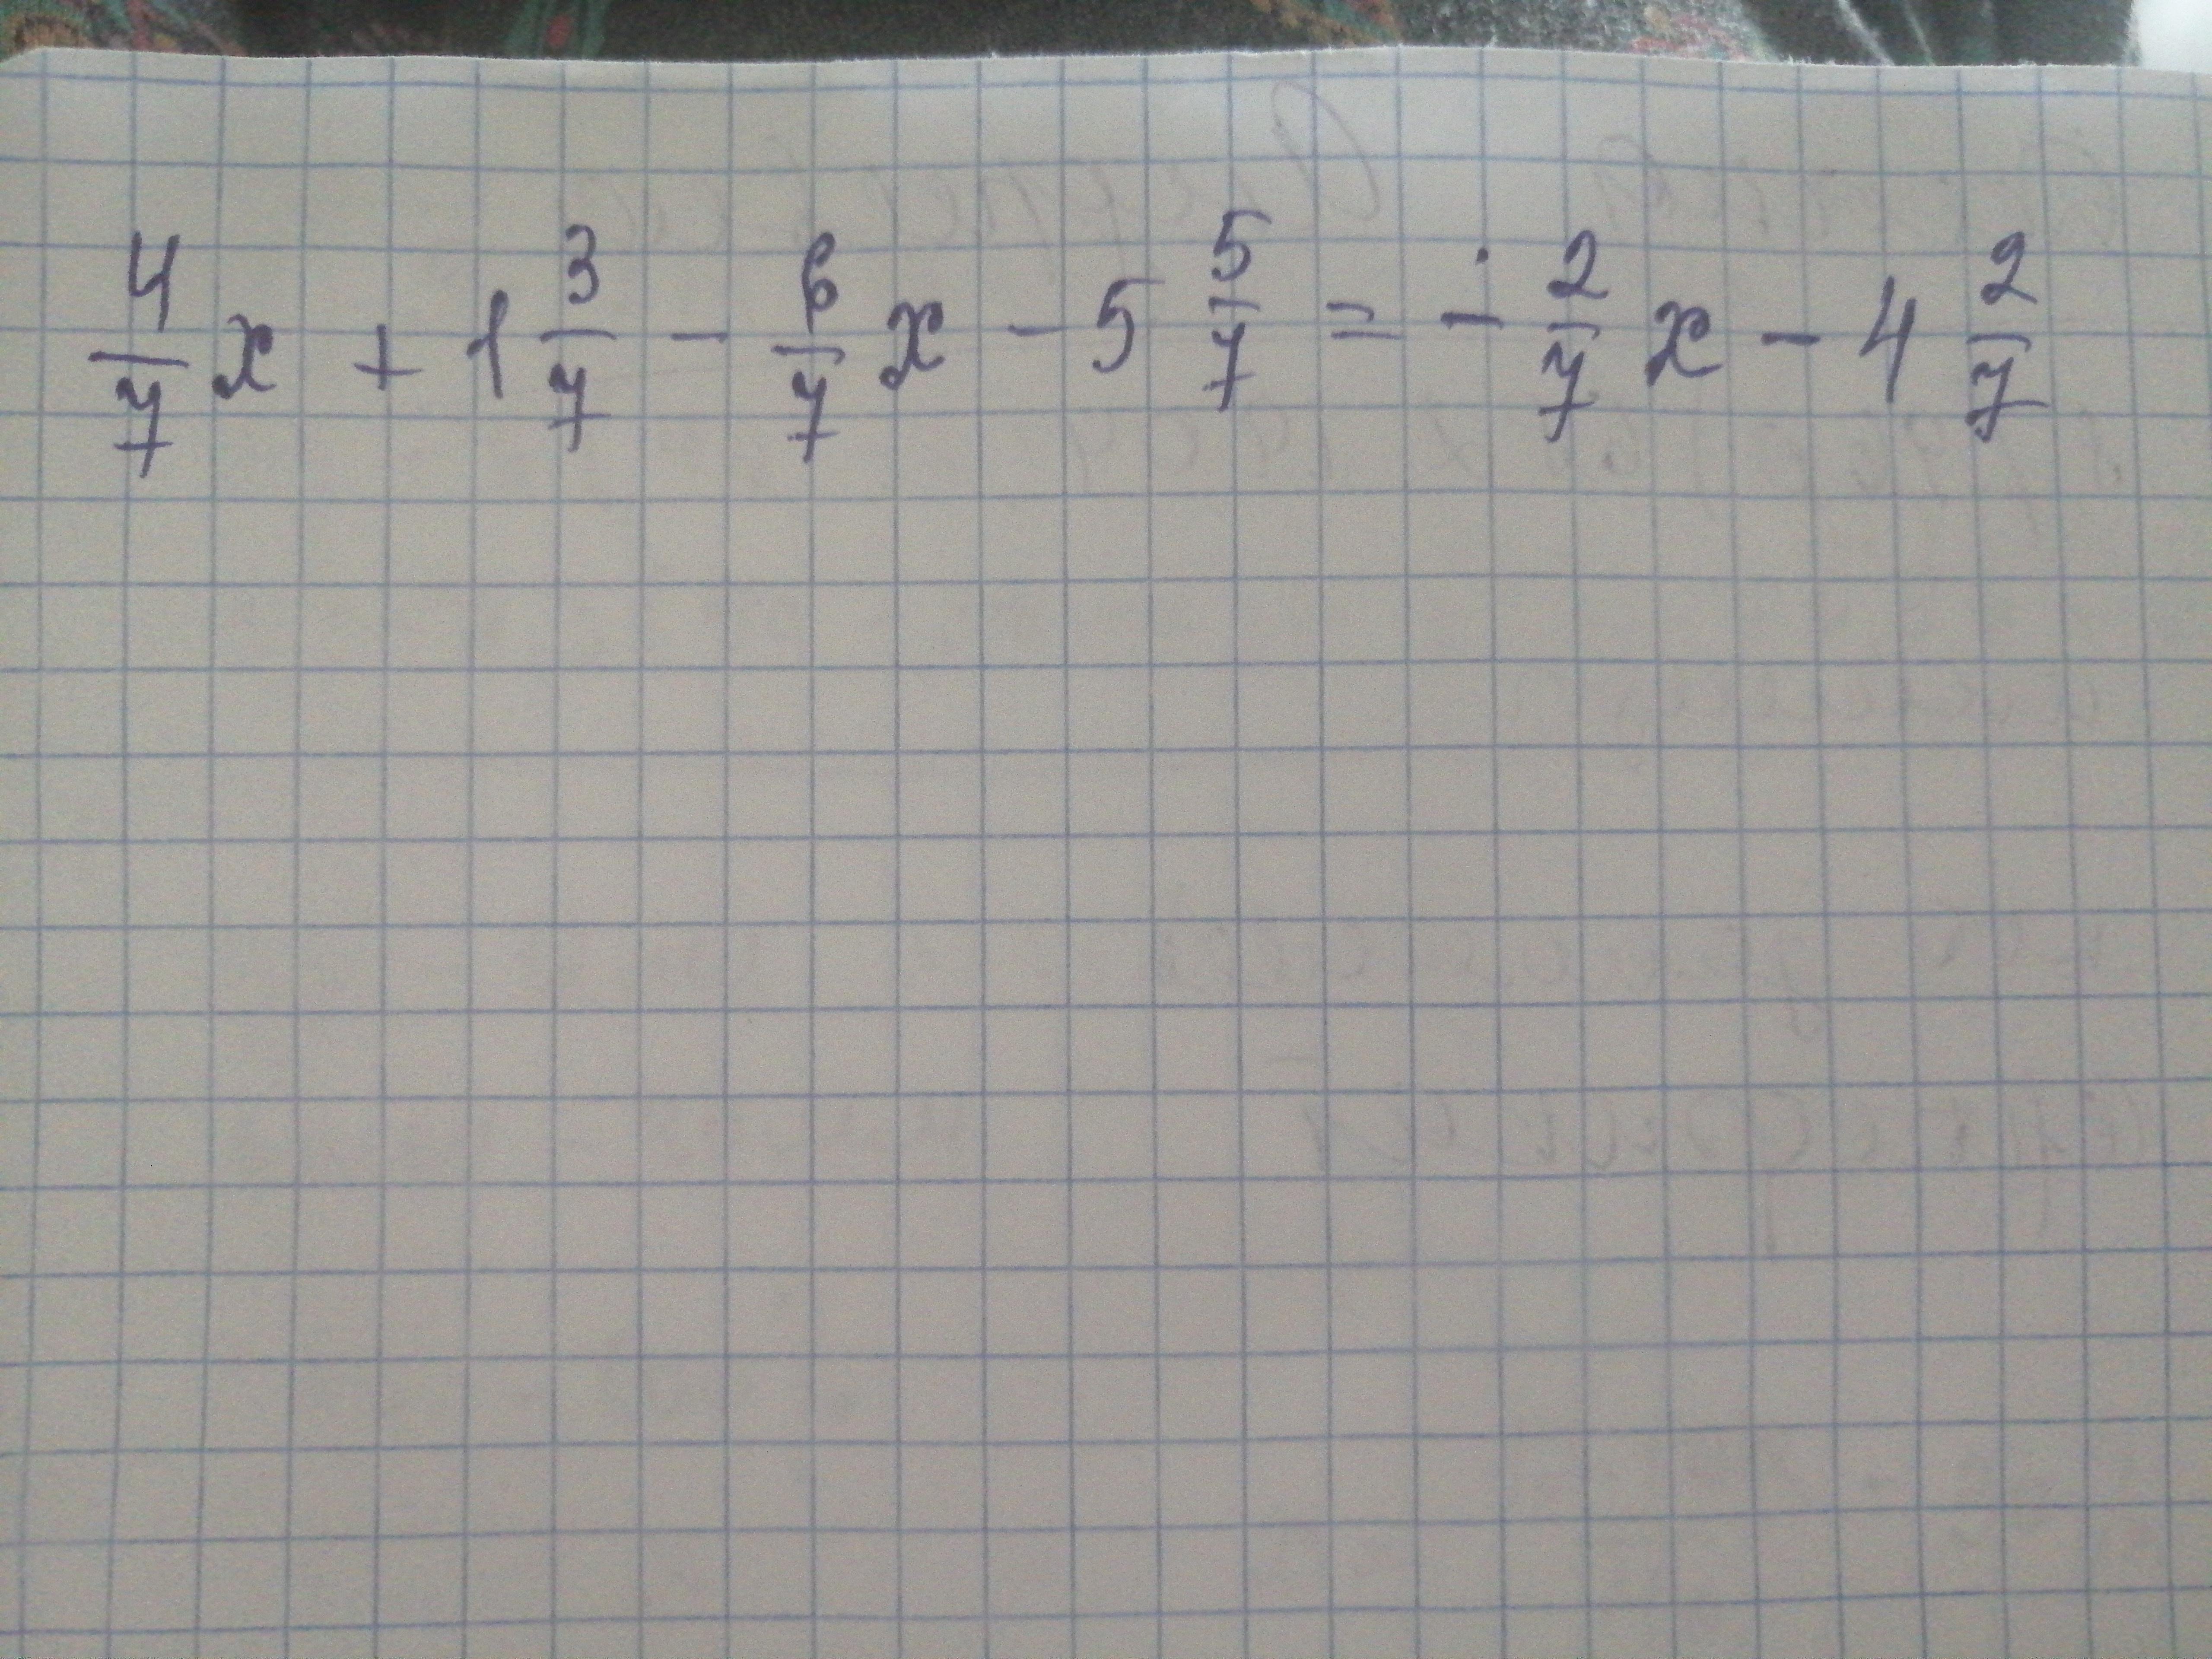 4/7 x + 1 3/7 - 6/7 x - 5 5/7 = - 2/7 x - 4 2/7